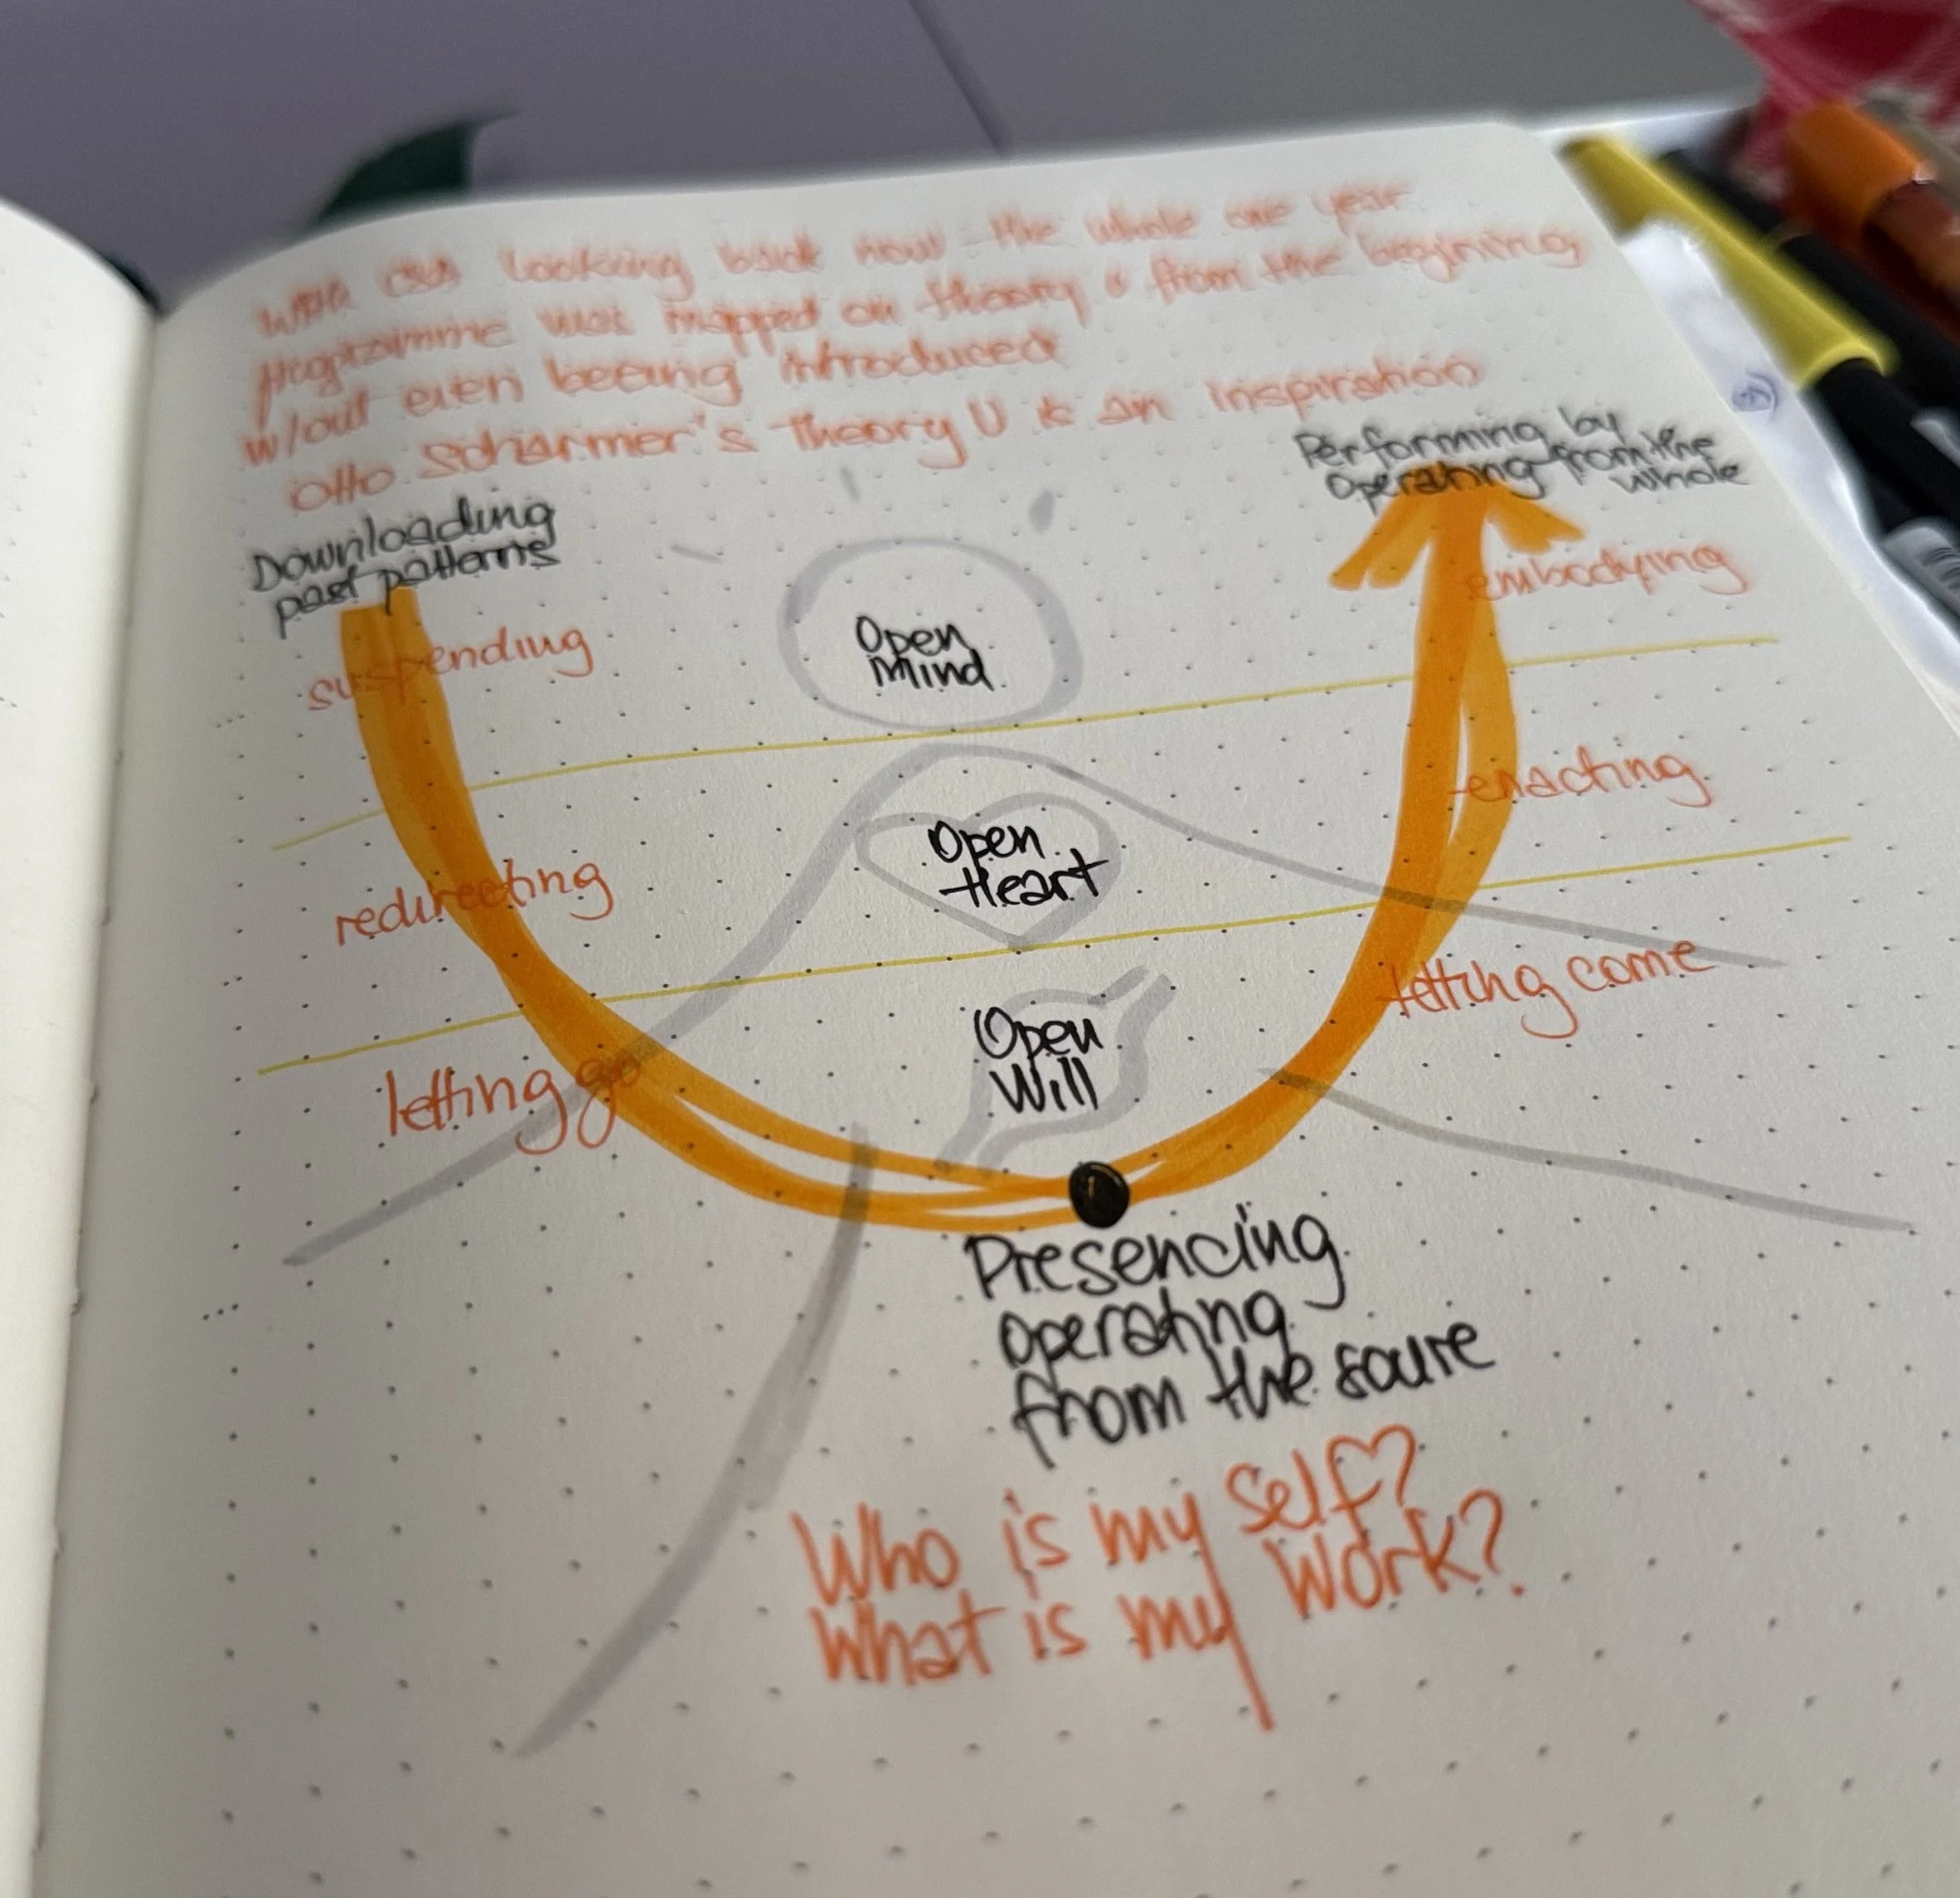 With CSA looking back now the whole one year
programme was mapped on theory u from the begining
w/out even beeing introduced
Otto Scharmer's Theory U is an inspiration
Performing by
Operating from the
whole
Downloading
past patterns
embodying
suspending
Open
Mind
enacting
redirecting
Open
Heart
letting come
letting go
Open
Will
Presencing
operating
from the soure
Who is my self?
What is my work?